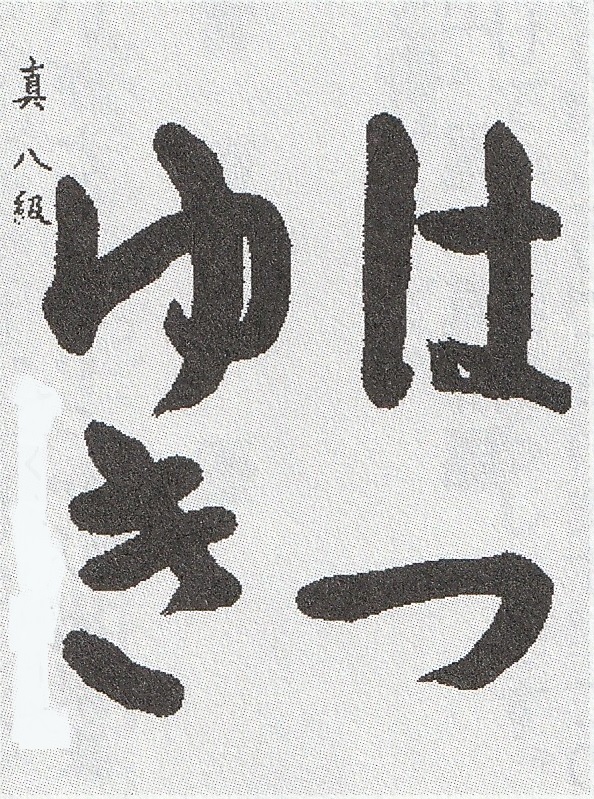 はつ
ゆき
真 八級